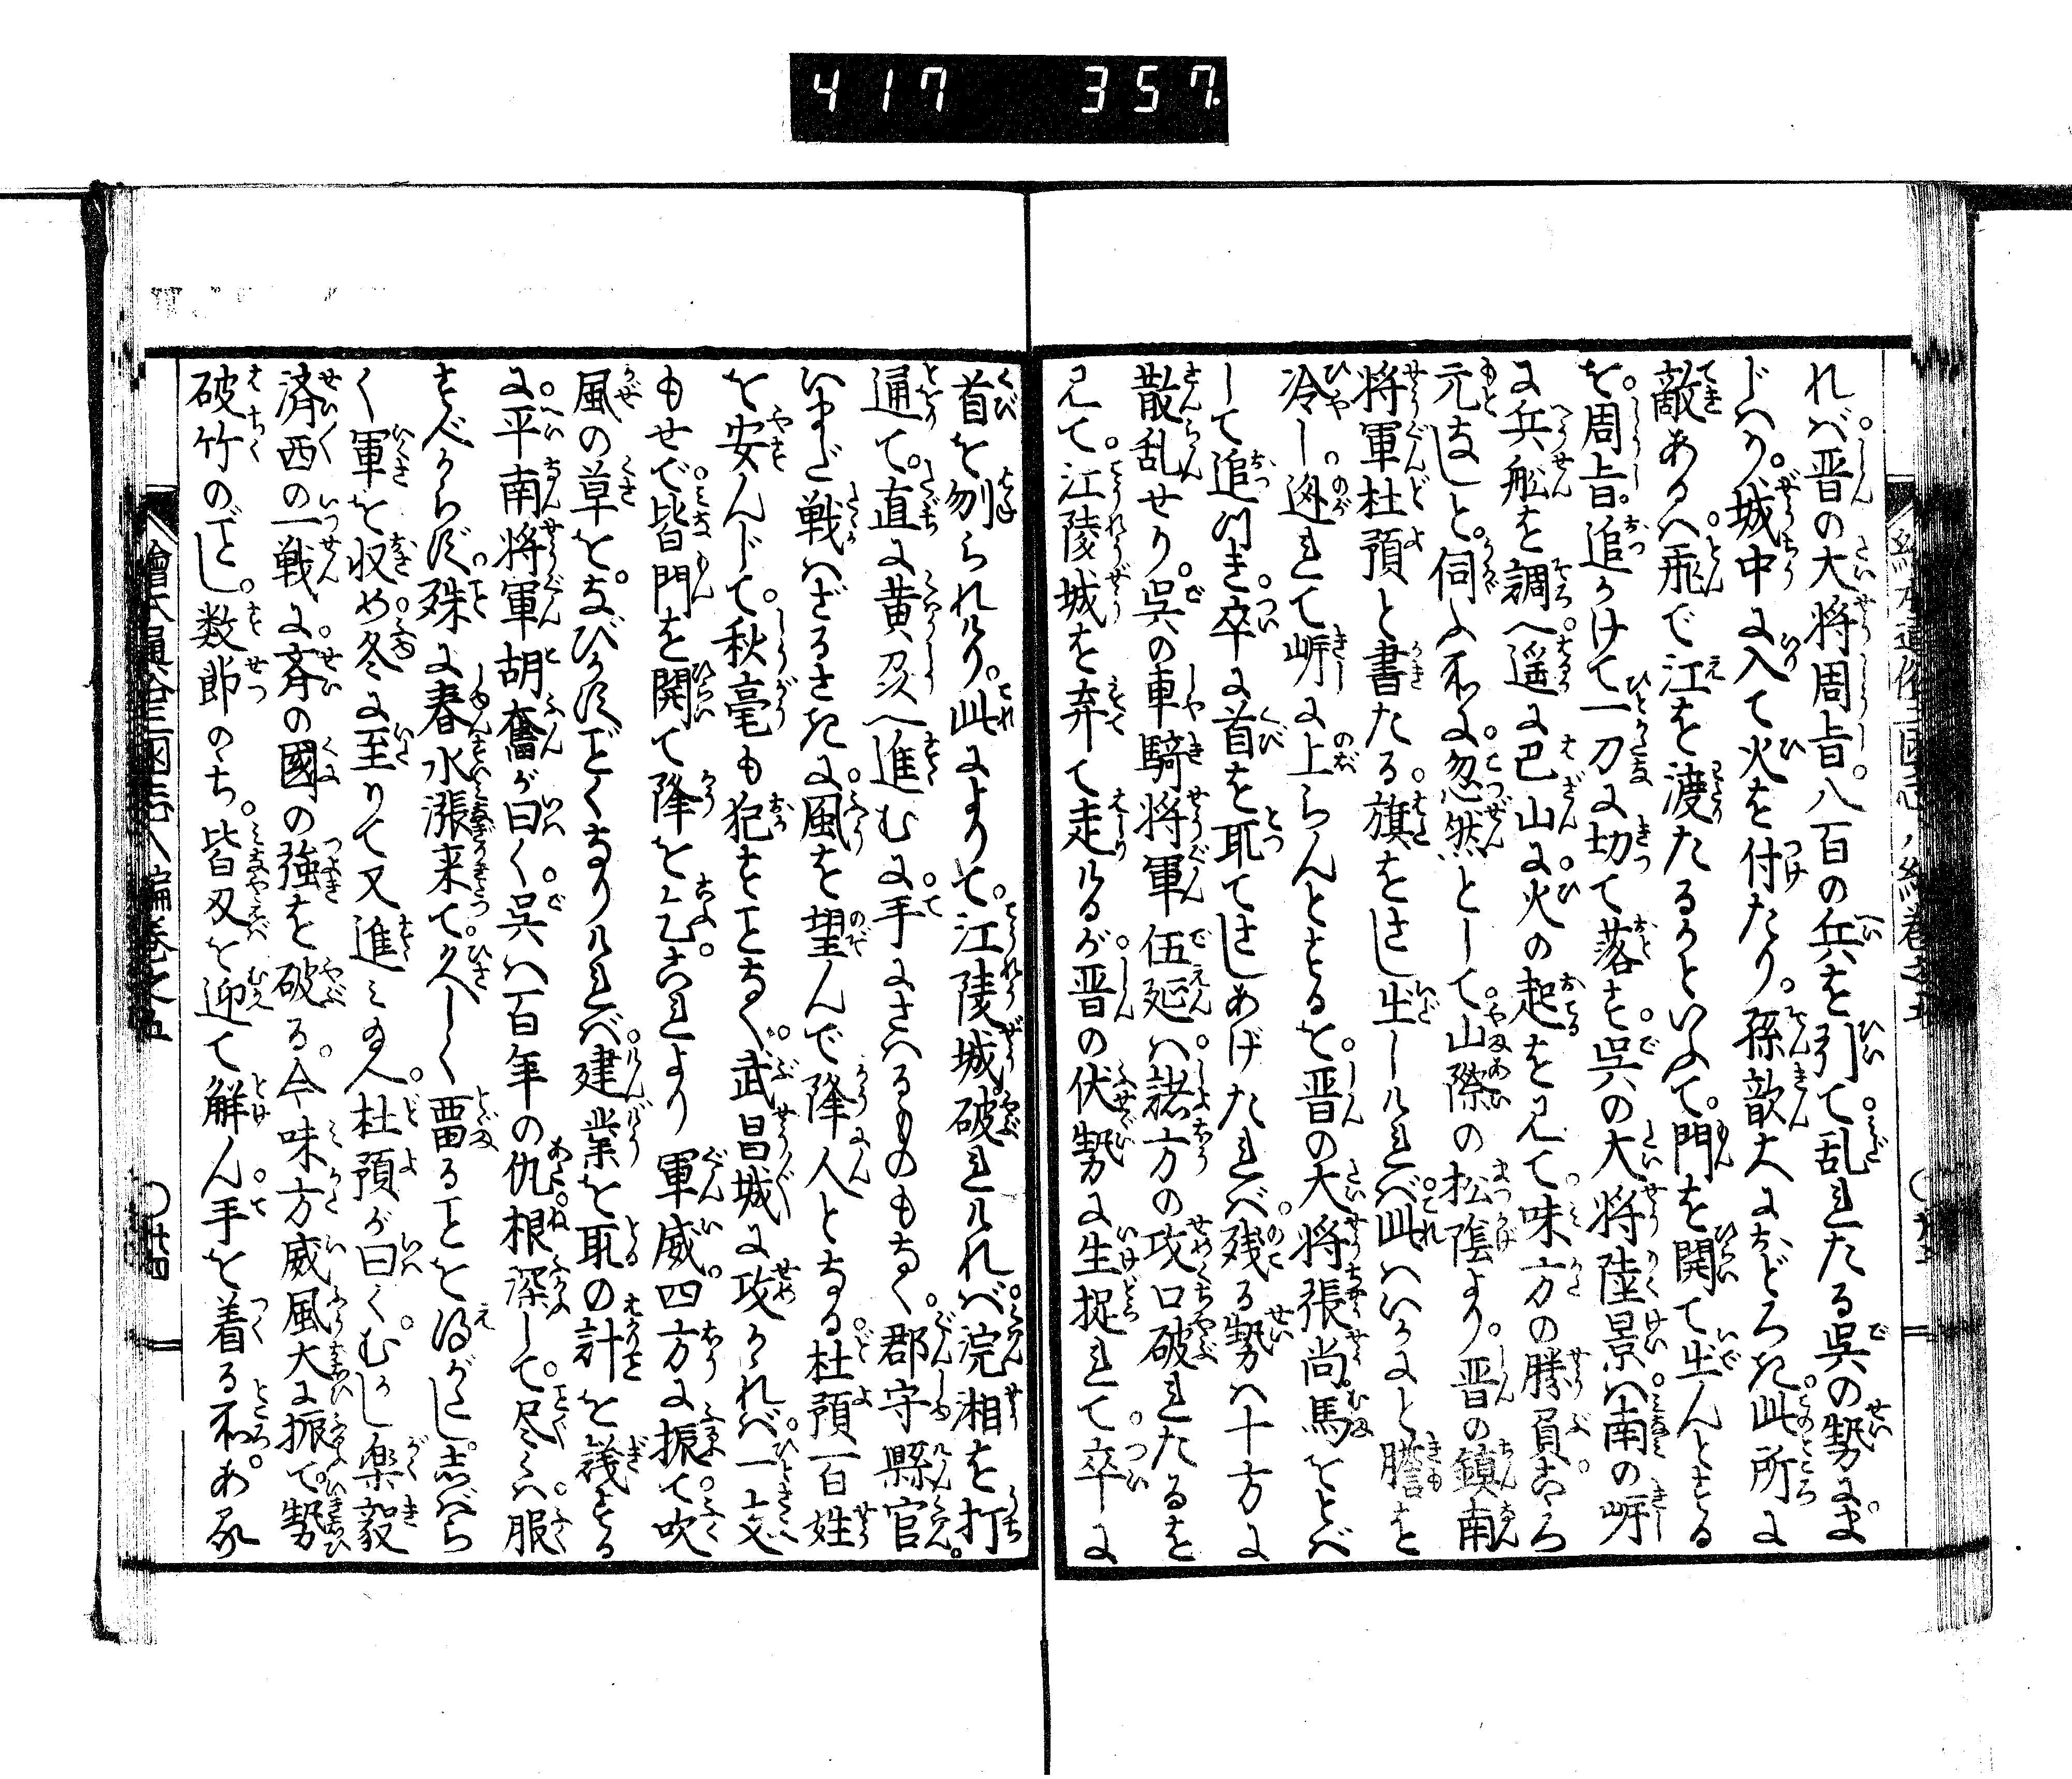 417 357
れバ晋の大将周旨八百の兵を引て乱れたる呉の勢にま
じハり城中に入て火を付たり孫歆大におどろき此所に
敵あるハ飛で江を渡たるかといふて門を開て出んとする
を周旨追かけて一刀に切て落す呉の大将陸景ハ南の岍
に兵船を調へ遥に巴山に火の起をみて味方の勝負こゝろ
元なしと伺ふ所に忽然として山際の松陰より晋の鎮南
将軍杜預と書たる旗をさし出しけれバ此ハいかにと膽を
冷し迯れて岍に上らんとするを晋の大将張尚馬をとバ
して追つき卒に首を取てさしあげたれバ残る勢ハ十方に
散乱せり呉の車騎将軍伍延ハ諸方の攻口破れたるを
みて江陵城を弃て走けるが晋の伏勢に生捉れて卒に
首を刎られけり此によりて江陵城破れけれバ沅湘を打
通て直に黄州へ進むに手にさハるものもなく郡守縣官
いまだ戦ハざるさきに風を望んで降人となる杜預百姓
を安んじて秋毫も犯すことなく武昌城に攻かゝれバ一支
もせで皆門を開て降を乞これより軍威四方に振て吹
風の草をなびかすごとくなりけれバ建業を取の計を議する
に平南将軍胡奮が曰く呉ハ百年の仇根深して尽くハ服
すべからず殊に春水漲来て久しく畱ることを得がたし志ばら
く軍を収め冬に至りて又進み玉へ杜預が曰くむかし楽毅
済西の一戦に斉の國の強を破る今味方威風大に振て勢
破竹のごとし数節のゝち皆刃を迎て解ん手を着る所あら
繪本通俗三國志八編巻之五